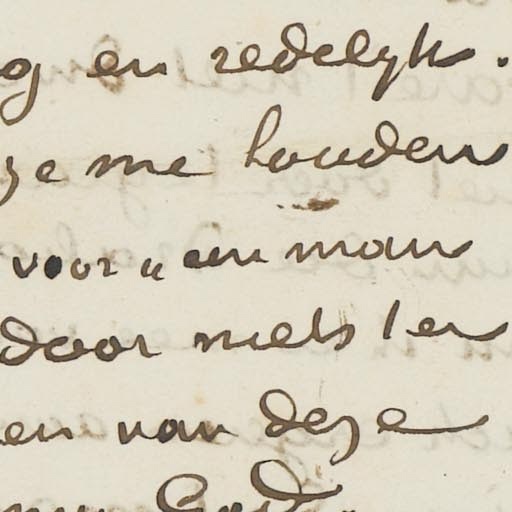 og en redelyk.
ze me houden
voor u een man
door niets ter
en van deze
God.